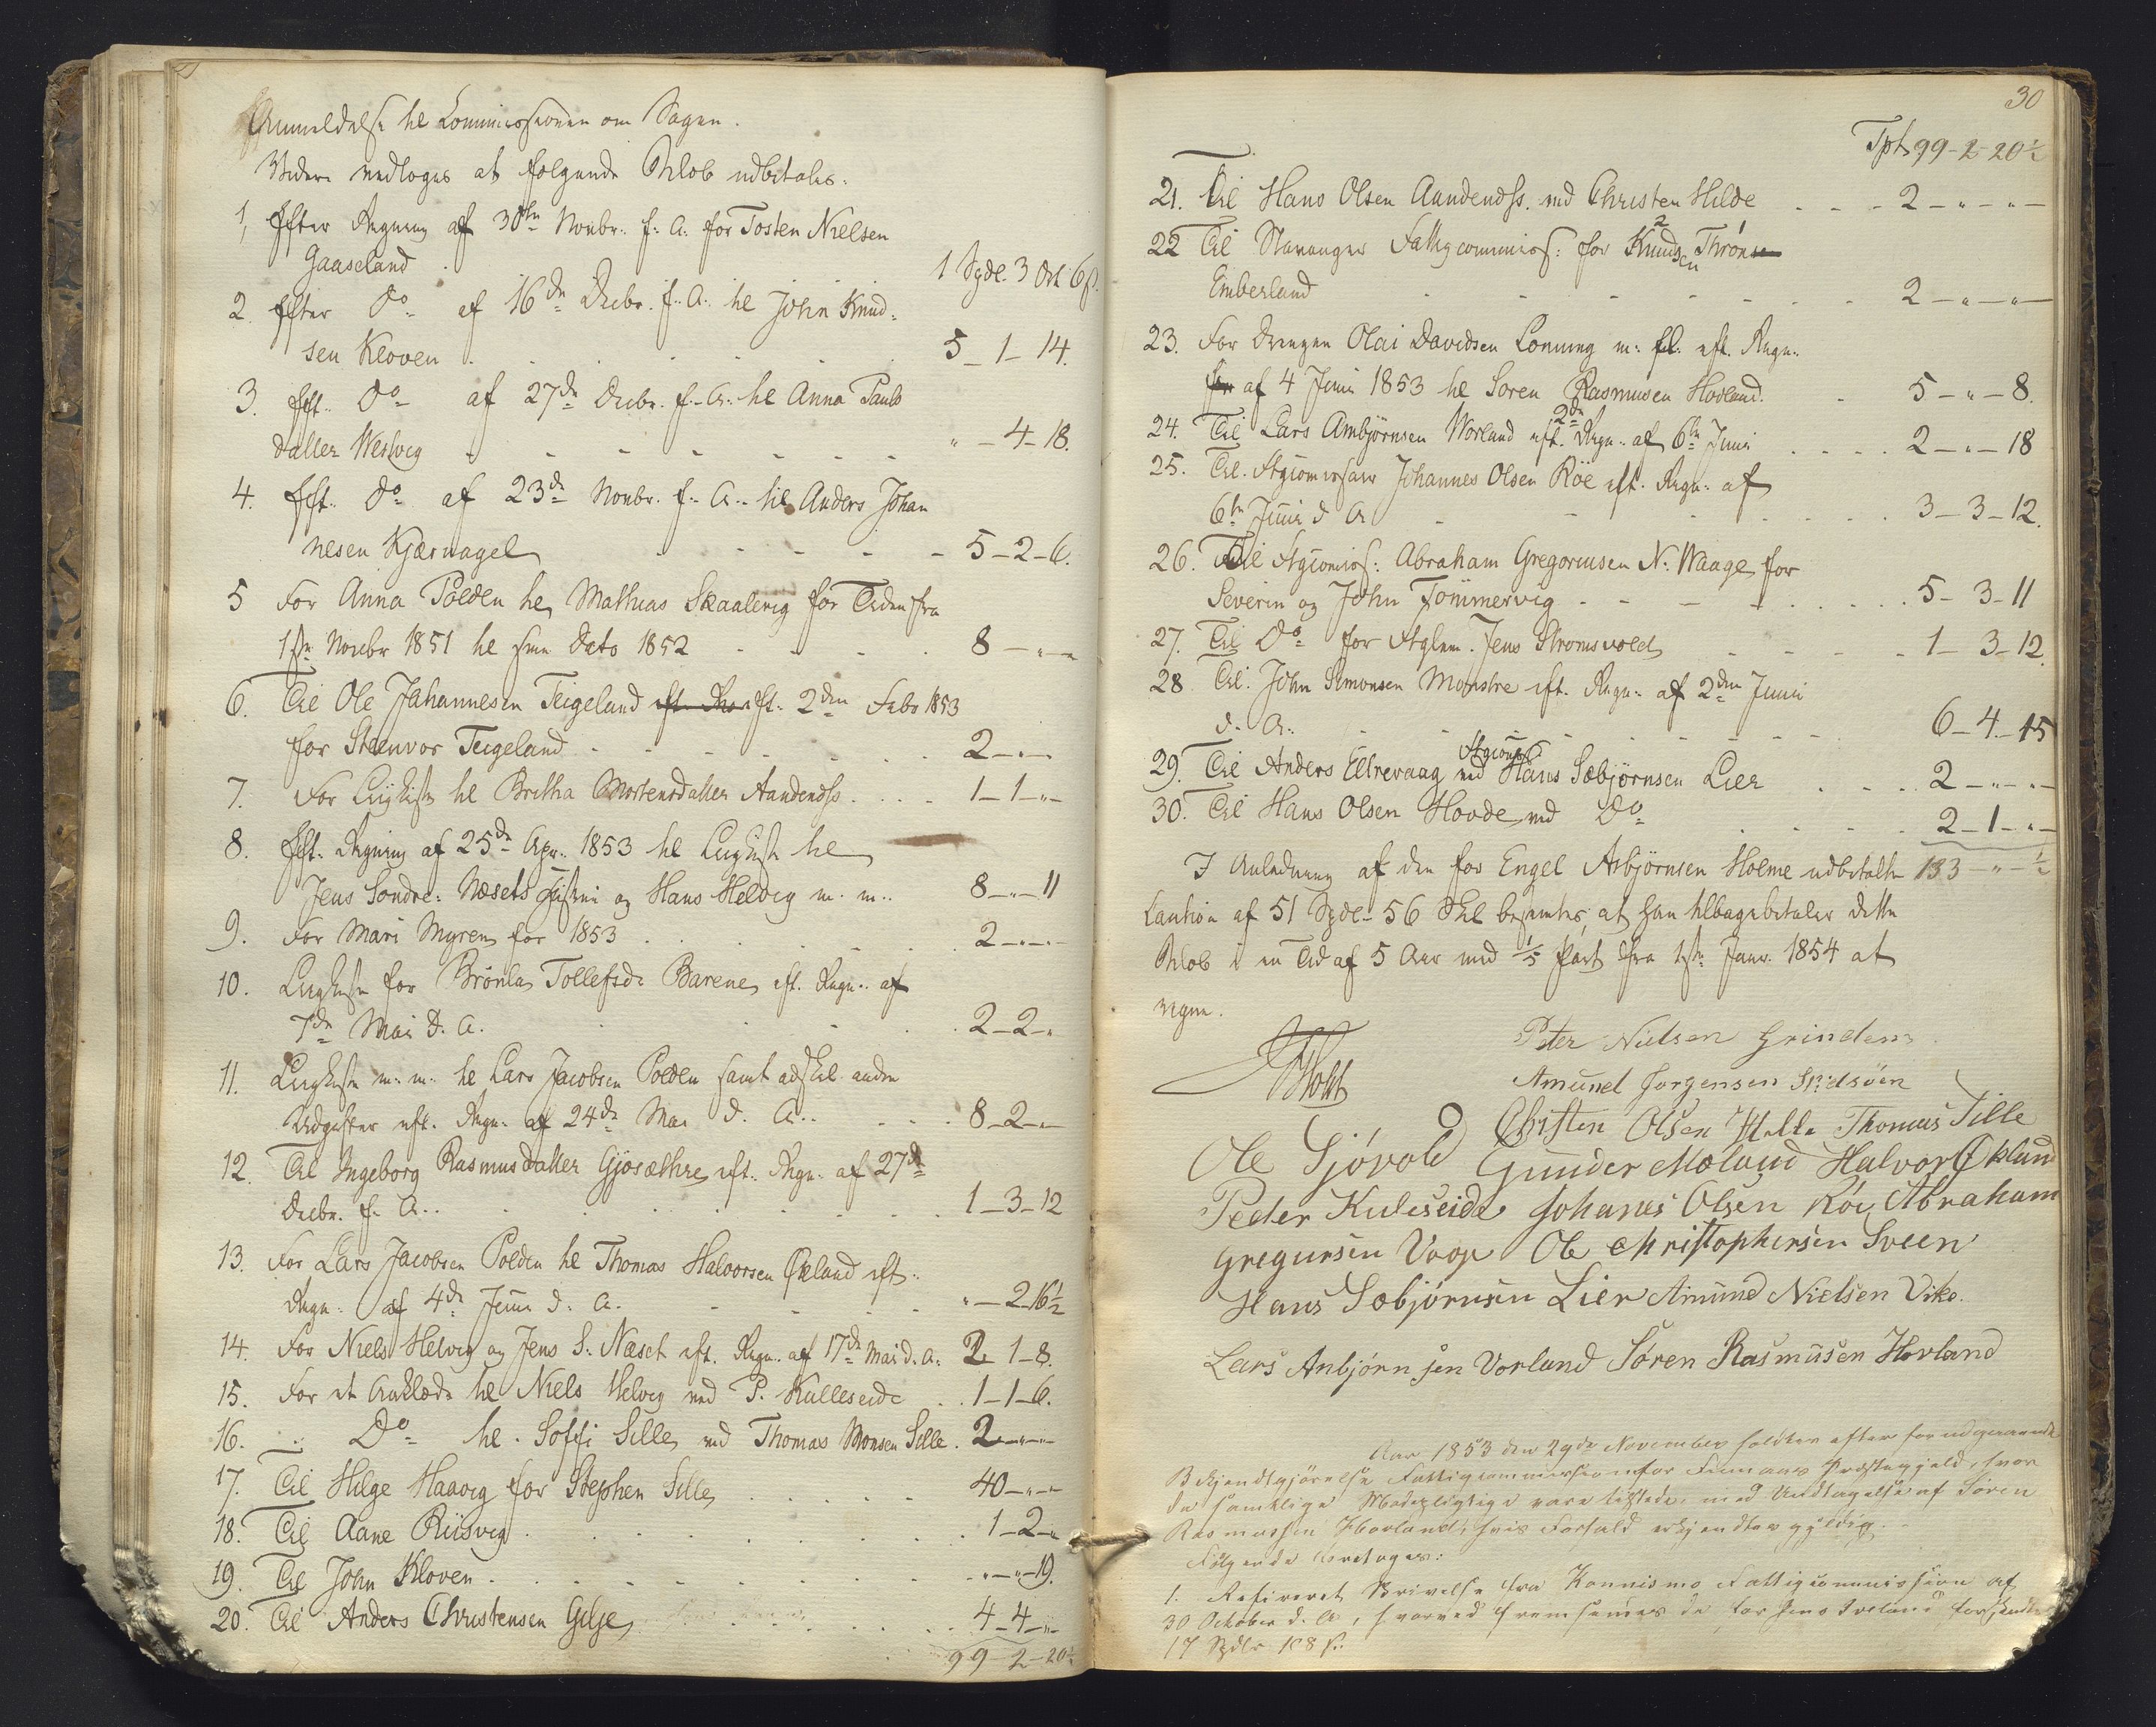 Anmeldelse til Commissionen om Sagen.
Videre vedtoges at følgende Beløb udbetales:
1, Efter Regning af 30te Novbr. f. A. for Tosten Nielsen
Gaaseland . 1 Spdl. 3 Ort 6 ß.
2. Efter Do af 16de Decbr. f. A. til John Knud-
sen Kloven . . . . . 5 - 1 - 14.
3. Eft. Do af 27de Decbr. f. A. til Anna Pauls
datter Westvig - - - - - - „ - 4 - 18.
4. Eft. Do af 23de Novbr. f. A. til Anders Johan
nesen Kjærnagel - - - - - 5 - 2 - 6.
5 For Anna Polden til Mathias Skaalevig for Tiden fra
1ste Novbr 1851 til sme Dato 1852 - - - . 8 - „ - „
6. Til Ole Johannesen Teigeland eft. 2den Febr 1853
for Steenvor Teigeland . - - - . . . 2 - „ -
7. For Liigkiste til Britha Mortensdatter Aandendss. . . . 1 - 1 - „ -
8. Eft. Regning af 25de Apr. 1853 til Liigkiste til
Jens Søndre: Næsets og Hans Helvig m. m. 8 - „ - 11
9. For Mari Myren for 1853 . . . . . . 2 - „ - „ -
10. Liigkiste for Brønla Tollefsd. Barene eft. Regn. af
7de Mai d. A. . . . . . 2 - 2 - „
11. Liigkiste m. m. til Lars Jacobsen Polden samt adskil. andre
Udgifter eft. Regn. af 24de Mai d. A. . . . . 8 - 2 - „
12. Til Ingeborg Rasmusdatter Gjøsæthre eft. Regn. af 27de
Decbr. f. A. . . . . . . . 1 - 3 - 12
13. For Lars Jacobsen Polden til Thomas Halvorsen Økland eft.
Regn. af 4de Juni d. A. - - - - „ - 2 - 16½
14. For Niels Helvig og Jens S. Næset eft. Regn. af 17de Mai d. A. 2 1 - 8.
15. For et Anklæde til Niels Helvig ved P. Kulleseide . . 1 - 1 - 6.
16. „ Do til Soffi Sille ved Thomas Monsen Sille . 2 - „ - „ -
17. Til Hilge Haavig for Stephen Sille . . . . . . 40 - „ - „
18. Til Aane Riisvig . . . . . . . 1 - 2 - „
19. Til John Kloven . . - - - - . . . „ - „ - 19.
20. Til Anders Christensen Gilje . . . . . . 4 - 4 - „ -
99 - 2 - 20½
30
Tpt 99 - 2 - 20½
21. Til Hans Olsen Aandendss. ved Christen Hilde . . - 2 - „ - „ -
22 Til Stavanger Fattigcommiss: for Knudsen Thrøn
Emberland - - - - - - - 2 - „ - „ -
23. For Drengen Olai Davidsen Lonning m. fl. eft. Regn.
af 4 Juni 1853 til Søren Rasmusen Hovland. - 5 - „ - 8.
24. Til Lars Ambjørnsen Worland eft. 2de Regn. af 6te Juni . . . . 2 - „ - 18
25. Til Ftgcomissair Johannes Olsen Röe eft. Regn. af
6te Juni d A. - - - . . . . 3 - 3 - 12.
26. Til Ftgcomiss: Abraham Gregoriusen N. Waage for
Severin og John Tömmervig - - - - . . . . 5 - 3 - 11
27. Til Do for Ftglem. Jens Stromsvold - - - - - 1 - 3 - 12.
28. Til John Simonsen Monstre eft. Regn. af 2den Juni
d. A. . - - - - - - 6 - 4 - 15
29. Til Anders Ellrevaag ved Ftgcomss Hans Sæbjørnsen Lier . . . . 2 - „ - „ -
30. Til Hans Olsen Hovde ved Do . - - - . 2 - 1 - „ -
I Anledning af den for Engel Asbjørnsen Holme udbetalte 133 - „ - ½
Caution af 51 Spdl. 56 Skl bestemtes, at han tilbagebetaler dette
Beløb i en Tid af 5 Aar med 1/5 Part fra 1ste Janr. 1854 at
regne.
Holst
Peter Nielsen Grindem
Amund Jørgensen Skidsøen
Christen Olsen Hille Thomas Sille
Ole Sjøvold Gunder Moland Halvor Økland
Peder Kuleseide Johanes Olsen Röe Abraham
Gregursen Vaage Ole Christophersen Sveen
Hans Sæbjørnsen Lier Amund Nielsen Vike.
Lars Anbjørnsen Vorland Søren Rasmusen Hovland
Aar 1853 den 29de November holdtes efter forudgaaende
Bekjendtgjørelse Fattigcommission for Finnaas Præstegjeld, hvor
da samtlige Mødepligtige vare tilstede, med Undtagelse af Søren
Rasmussen Hovland, hvis Forfald erkjendtes gyldig.
Følgende foretoges:
1. Refereret Skrivelse fra Fattigcommission af
30 October d. A., hvorved fremsendes de for Jens
17 Spdlr 108 ß.